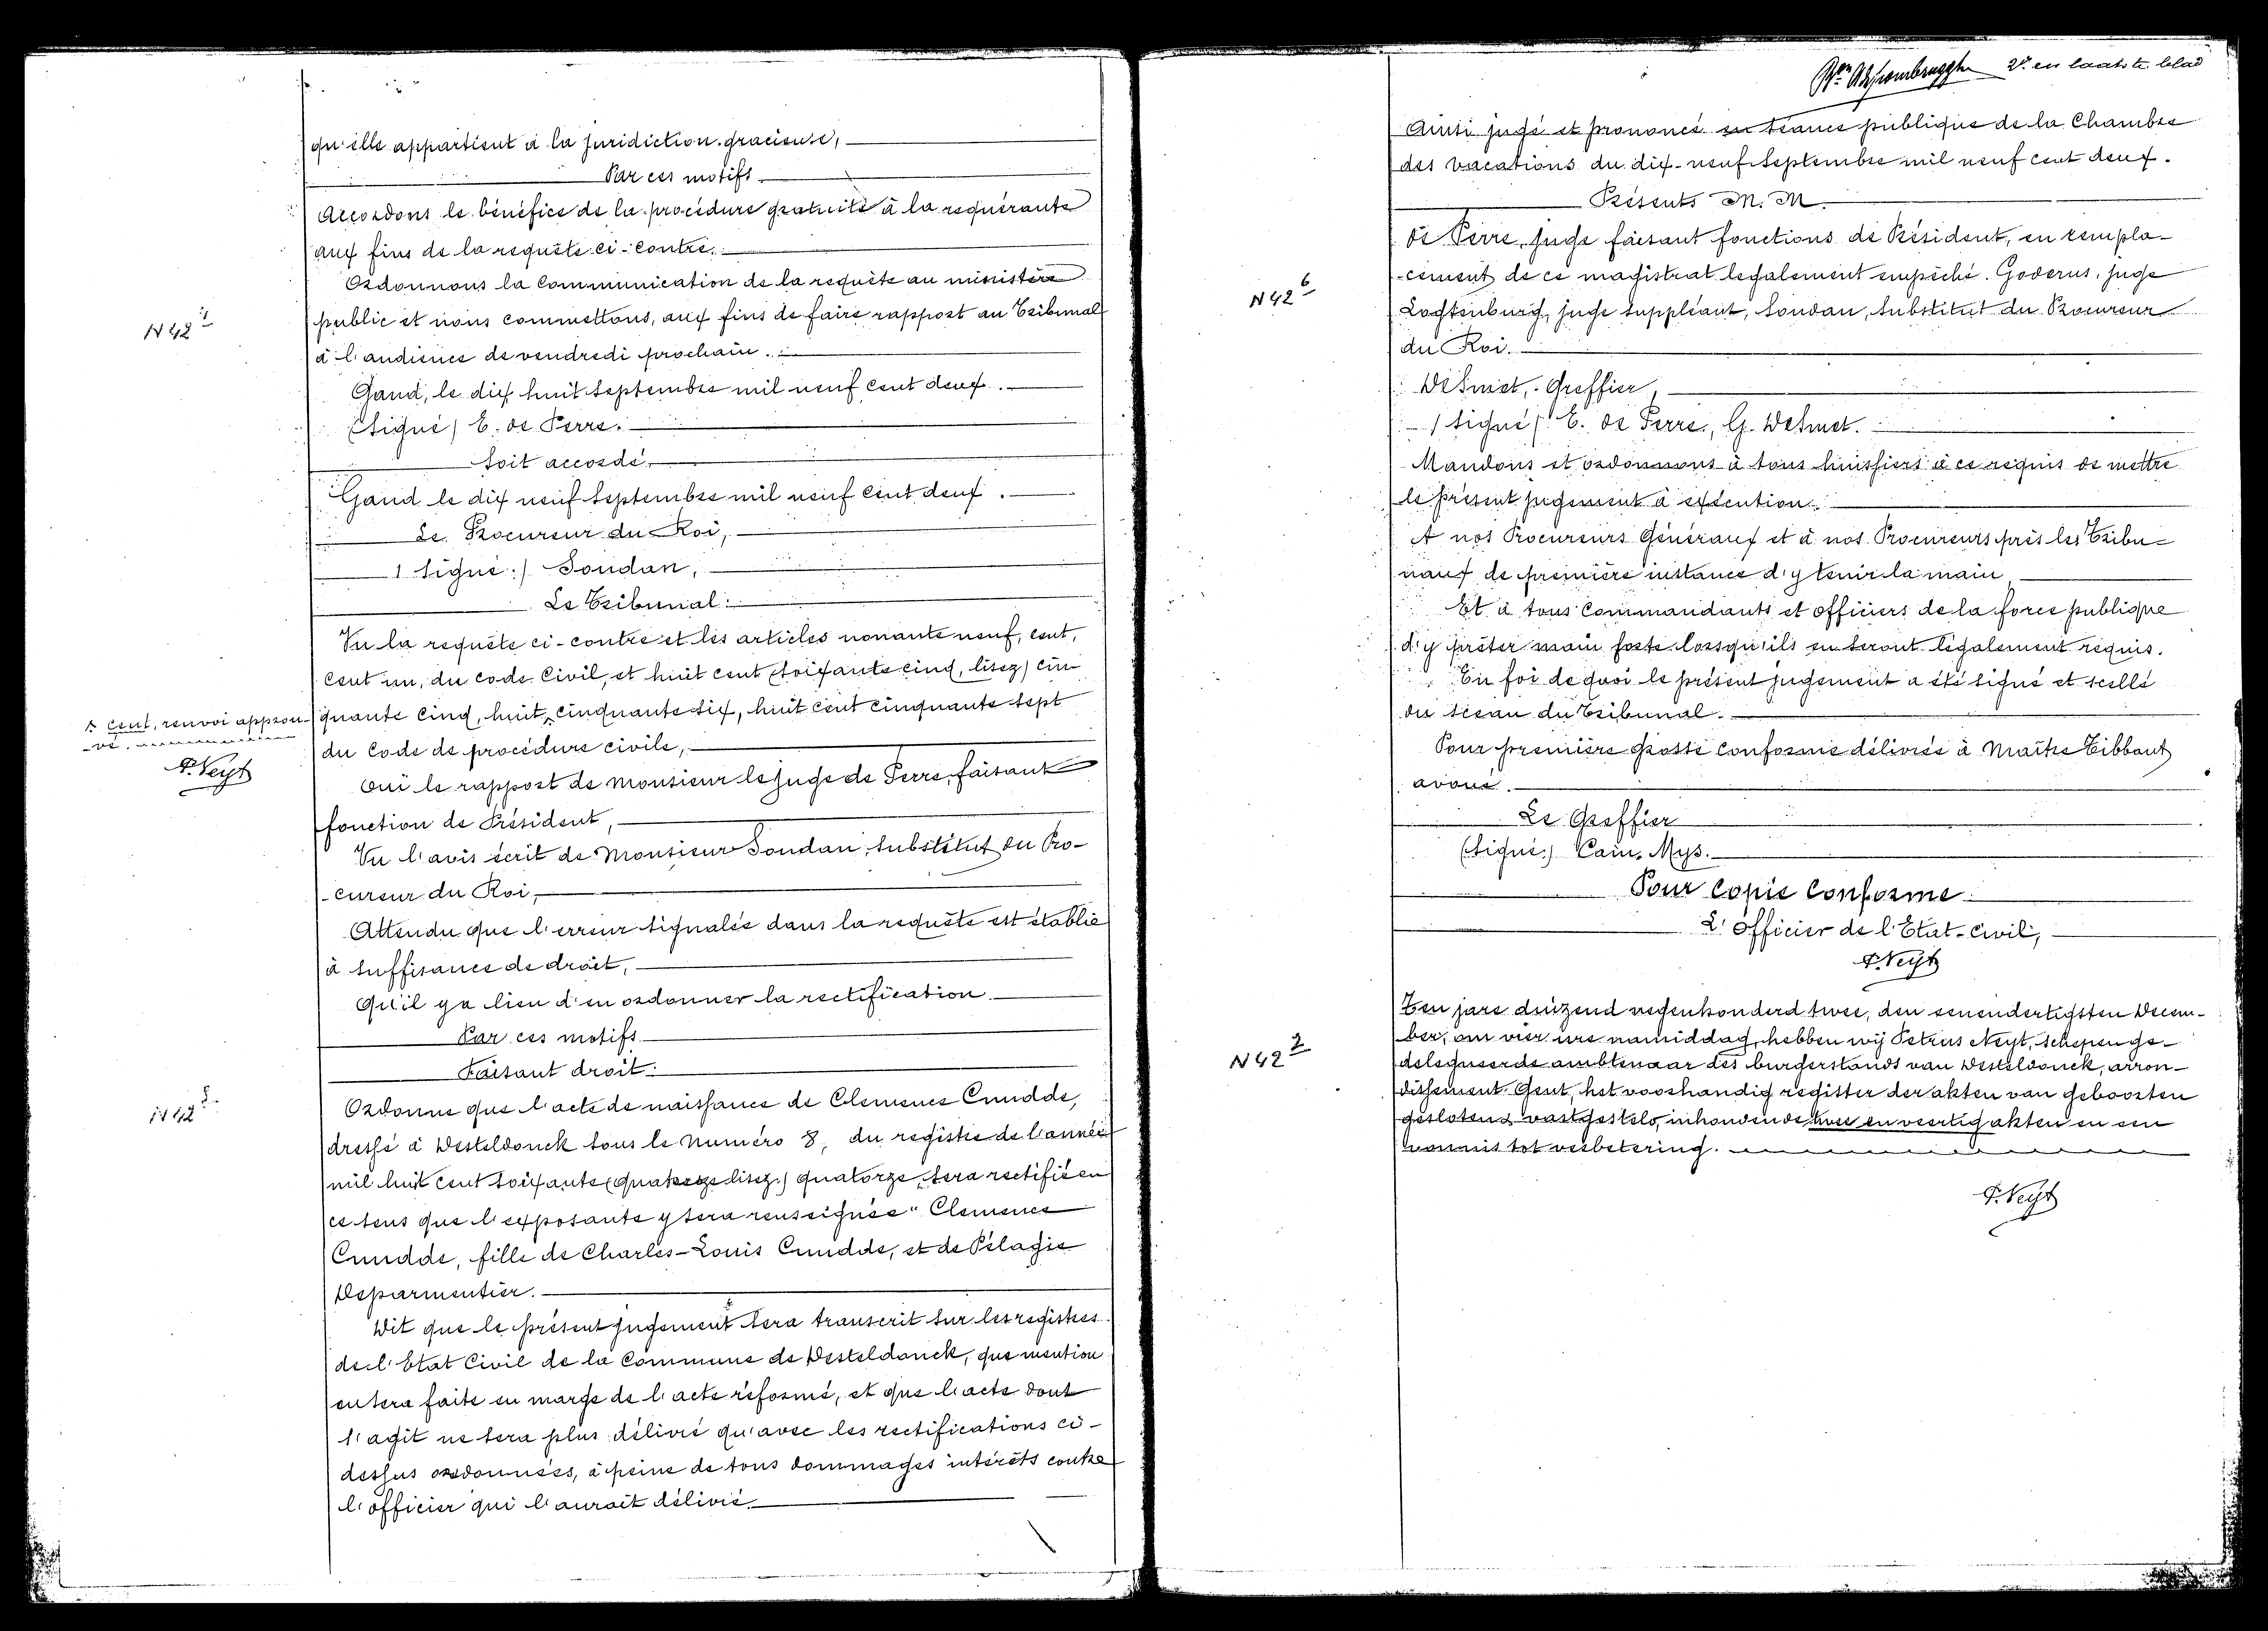 qu'elle appartient à la juridiction gracieuse,
Par ces motifs
Accordons le bénéfice de la procédure gratuite à la requérante
aux fins de la requête ci-contre.
Ordonnons la communication de la requête au ministère
public et nous commettons, aux fins de faire rapport au Tribunal
à l'audience de vendredi prochain.
Gand, le dix huit Septembre mil neuf cent deux.
(Signé) E. de Perre.
Soit accordé.
Gand le dix neuf Septembre mil neuf cent deux.
Le Procureur du Roi,
(Signé:) Soudan,
Le Tribunal:
Vu la requête ci-contre et les articles nonante neuf, cent,
cent un, du code Civil, et huit cent (soixante cinq, lisez) cin-
quante cinq, huit cinquante six, huit cent cinquante sept
du Code de procédure civile,
Ouï le rapport de Monsieur le juge de Perre, faisant
fonction de Président,
Vu l'avis écrit de Monsieur Soudan, Substitut du Pro-
-cureur du Roi,
Attendu que l'erreur signalée dans la requête est établie
à suffisance de droit,
Qu'il y a lieu d'en ordonner la rectification
Par ces motifs
Faisant droit:
Ordonne que l'acte de naissance de Clemence Cnudde,
dressé à Desteldonck sous le numéro 8, du registre de l'année
mil huit cent soixante (quatorze lisez:) quatorze, sera rectifié en
ce sens que l'exposante y sera renseignée "Clemence
Cnudde, fille de Charles-Louis Cnudde, et de Pélagie
Deparmentier.
Dit que le présent jugement sera transcrit sur les registres
de l'Etat Civil de la Commune de Desteldonck, que mention
en sera faite en marge de l'acte réformé, et que l'acte dont
s'agit ne sera plus délivré qu'avec les rectifications ci-
dessus ordonnées, à peine de tous dommages intérêts contre
l'officier qui l'aurait délivré.
N 42
cent, renvoi approu-
-vé.
P. Neyt
N 42 5
2e en laatste blad
Ainsi jugé et prononcé en séance publique de la Chambre
des vacations du dix-neuf Septembre mil neuf cent deux.
Présents M. M.
de Perre, juge faisant fonctions de Président, en rempla-
-cement de ce magistrat légalement empêché. Goderus, juge
Lochtenburg, juge suppléant, Soudan, Substitut du Procureur
du Roi.
Desmet, Greffier,
(Signé) E. de Perre, G. Desmet.
Mandons et ordonnons à tous huissiers à ce requis de mettre
le présent jugement à exécution.
A nos Procureurs Généraux et à nos Procureurs près les Tribu-
naux de première instance d'y tenir la main,
Et à tous Commandants et officiers de la force publique
d'y prêter main forte lorsqu'ils en seront légalement requis.
En foi de quoi le présent jugement a été signé et scellé
du sceau du Tribunal.
Pour première grosse conforme délivrée à Maître Tibbaut
avoué.
Le Greffier
(Signé:) Cam. Mys.
Pour copie conforme
L'Officier de l'Etat-Civil,
P. Neyt
Ten jare duizend negenhonderd twee, den eenendertigsten Decem-
ber, om vier ure namiddag, hebben wij Petrus Neyt, schepen ge-
delegueerde ambtenaar des burgerstands van Desteldonck, arron-
dissement Gent, het voorhandig register der akten van geboorten
gesloten & vastgesteld, inhoudende twee en veertig akten en een
vonnis tot verbetering.
P. Neyt
N 42 6
N 42 7